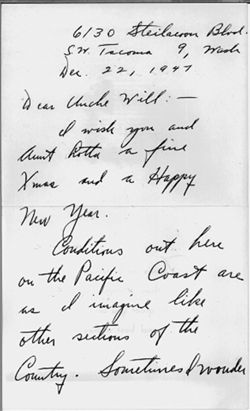 6130 Steilacoom Blvd.
S.W. Tacoma 9, Wash
Dec. 22, 1947
Dear Uncle Will:—
I wish you and
Aunt Rotta a fine
Xmas and a Happy
New Year.
Conditions out here
on the Pacific Coast are
as I imagine like
other sections of the
Country. Sometimes I wonder